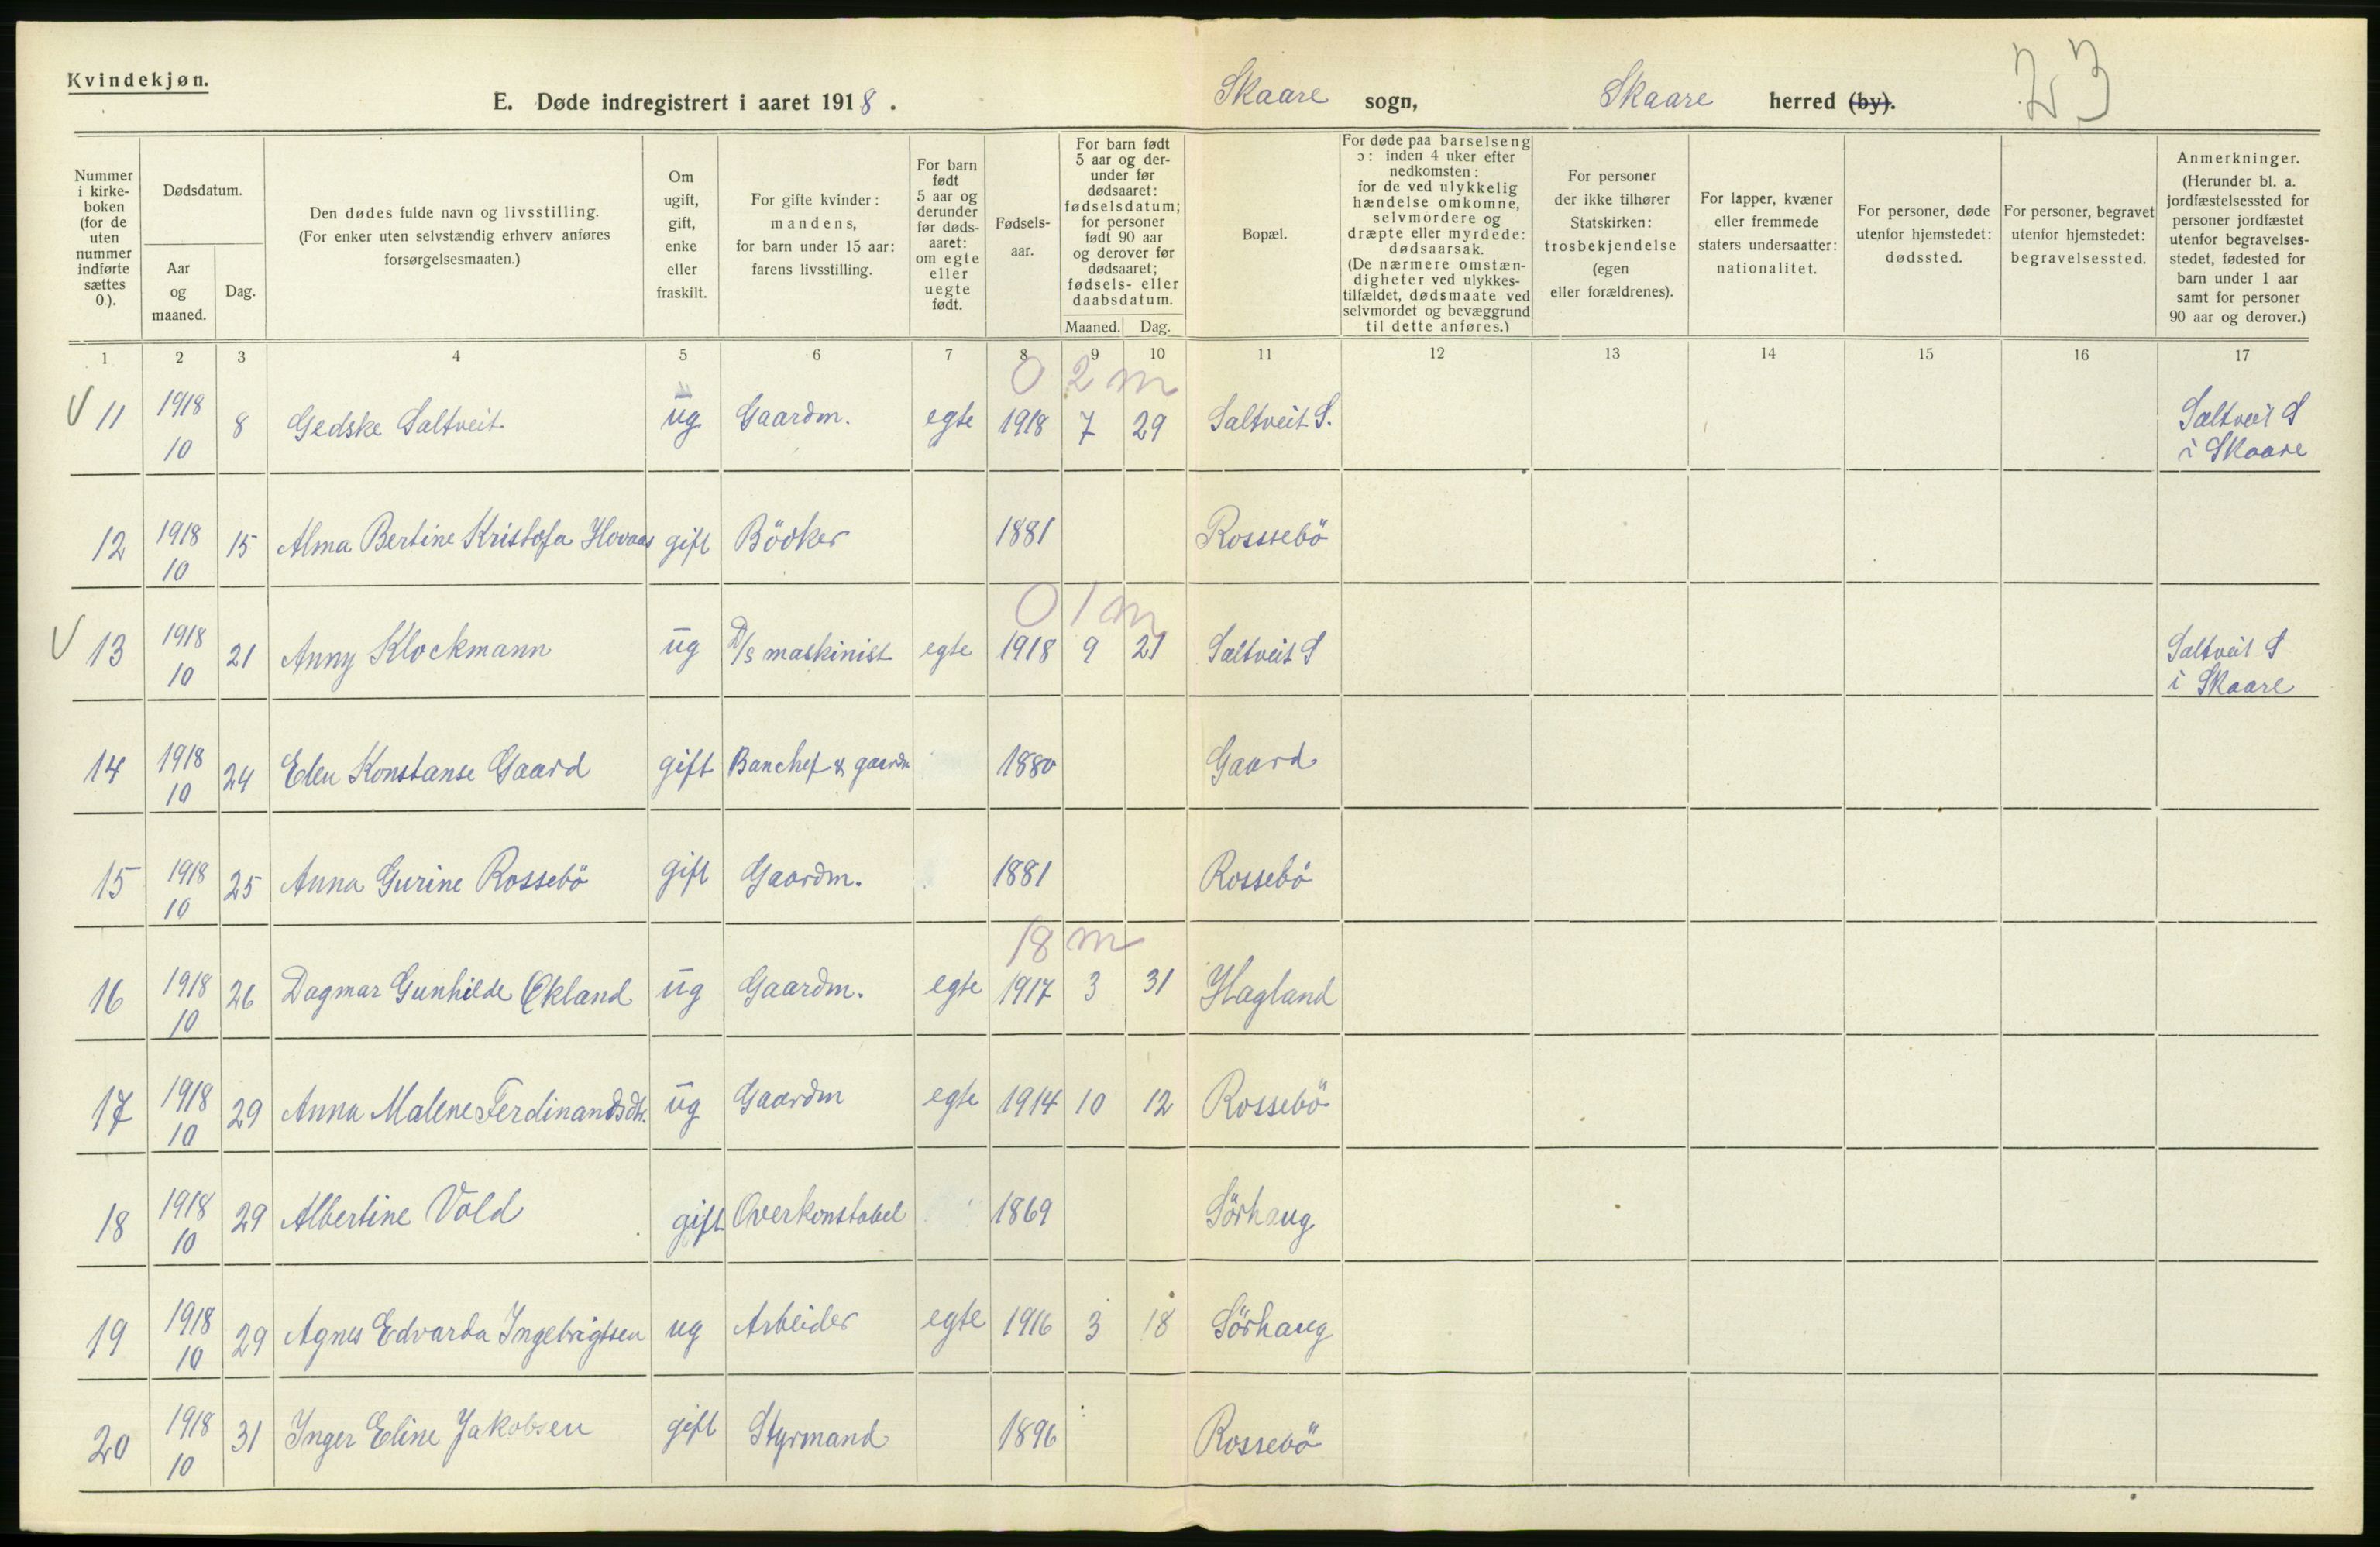 Kvindekjøn.
E. Døde indregistrert i aaret 1918.
Skaare sogn, Skaare herred (by).
23
Nummer i kirke- boken (for de uten nummer indførte sættes 0.).
Dødsdatum.
Aar og maaned.
Dag.
Den dødes fulde navn og livsstilling.
(For enker uten selvstændig erhverv anføres
forsørgelsesmaaten.)
Om ugift, gift, enke eller fraskilt.
For gifte kvinder: mandens, for barn under 15 aar: farens livsstilling.
For barn født 5 aar og derunder før døds- aaret: om egte eller uegte født.
Fødsels- aar.
For barn født 5 aar og der- under før dødsaaret: fødselsdatum; for personer født 90 aar og derover før dødsaaret; fødsels- eller daabsdatum.
Maaned. Dag.
Bopæl.
For døde paa barselseng ɔ: inden 4 uker efter nedkomsten: for de ved ulykkelig hændelse omkomne, selvmordere og dræpte eller myrdede: dødsaarsak. (De nærmere omstæn- digheter ved ulykkes- tilfældet, dødsmaate ved selvmordet og bevæggrund til dette anføres.)
For personer der ikke tilhører Statskirken: trosbekjendelse (egen eller forældrenes).
For lapper, kvæner eller fremmede staters undersaatter: nationalitet.
For personer, døde utenfor hjemstedet: dødssted.
For personer, begravet utenfor hjemstedet: begravelsessted.
Anmerkninger. (Herunder bl. a. jordfæstelsessted for personer jordfæstet utenfor begravelses- stedet, fødested for barn under 1 aar samt for personer 90 aar og derover.)
1 2 3 4 5 6 7 8 9 10 11 12 13 14 15 16 17
0 2 m
V 11 1918 10 8 Gedske Saltveit ug Gaardm. egte 1918 7 29 Saltveit S. Saltveit S i Skaare
12 1918 10 15 Alma Bertine Kristofa Hovaas gift Bödker 1881 Rosssebö
0 1 m
V 13 1918 10 21 Anny Klockmann ug D/s maskinist egte 1918 9 21 Saltveit S Saltveit S i Skaare
14 1918 10 24 Elen Konstanse Gaard gift Banchef & gaardm 1880 Gaard
15 1918 10 25 Anna Gurine Rossebö gift Gaardm. 1881 Rossebö
18 m
16 1918 10 26 Dagmar Gunhilde Økland ug Gaardm. egte 1917 3 31 Hagland
17 1918 10 29 Anna Malene Ferdinandsdtr. ug Gaardm egte 1914 10 12 Rossebö
18 1918 10 29 Albertine Vold gift Overkonstabel 1869 Sörhaug
19 1918 10 29 Agnes Edvarda Ingebrigtsen ug Arbeider egte 1916 3 18 Sörhaug
20 1918 10 31 Inger Eline Jakobsen gift Styrmand 1896 Rossebö